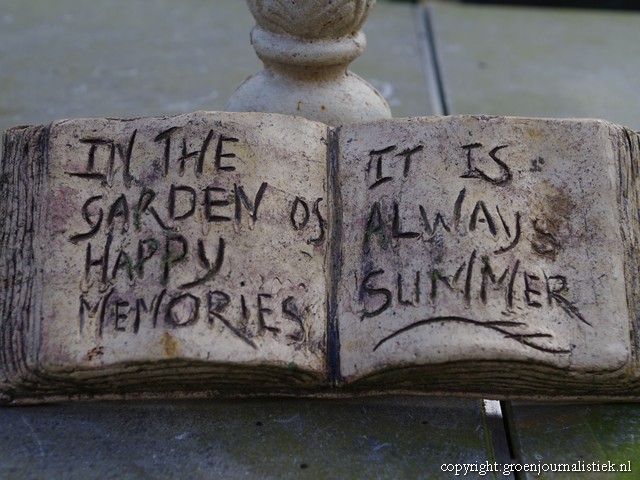 IN THE
GARDEN OS
HAPPY
MEMORIES
IT IS
ALWAYS
SUMMER
copyright:groenjournalistiek.nl